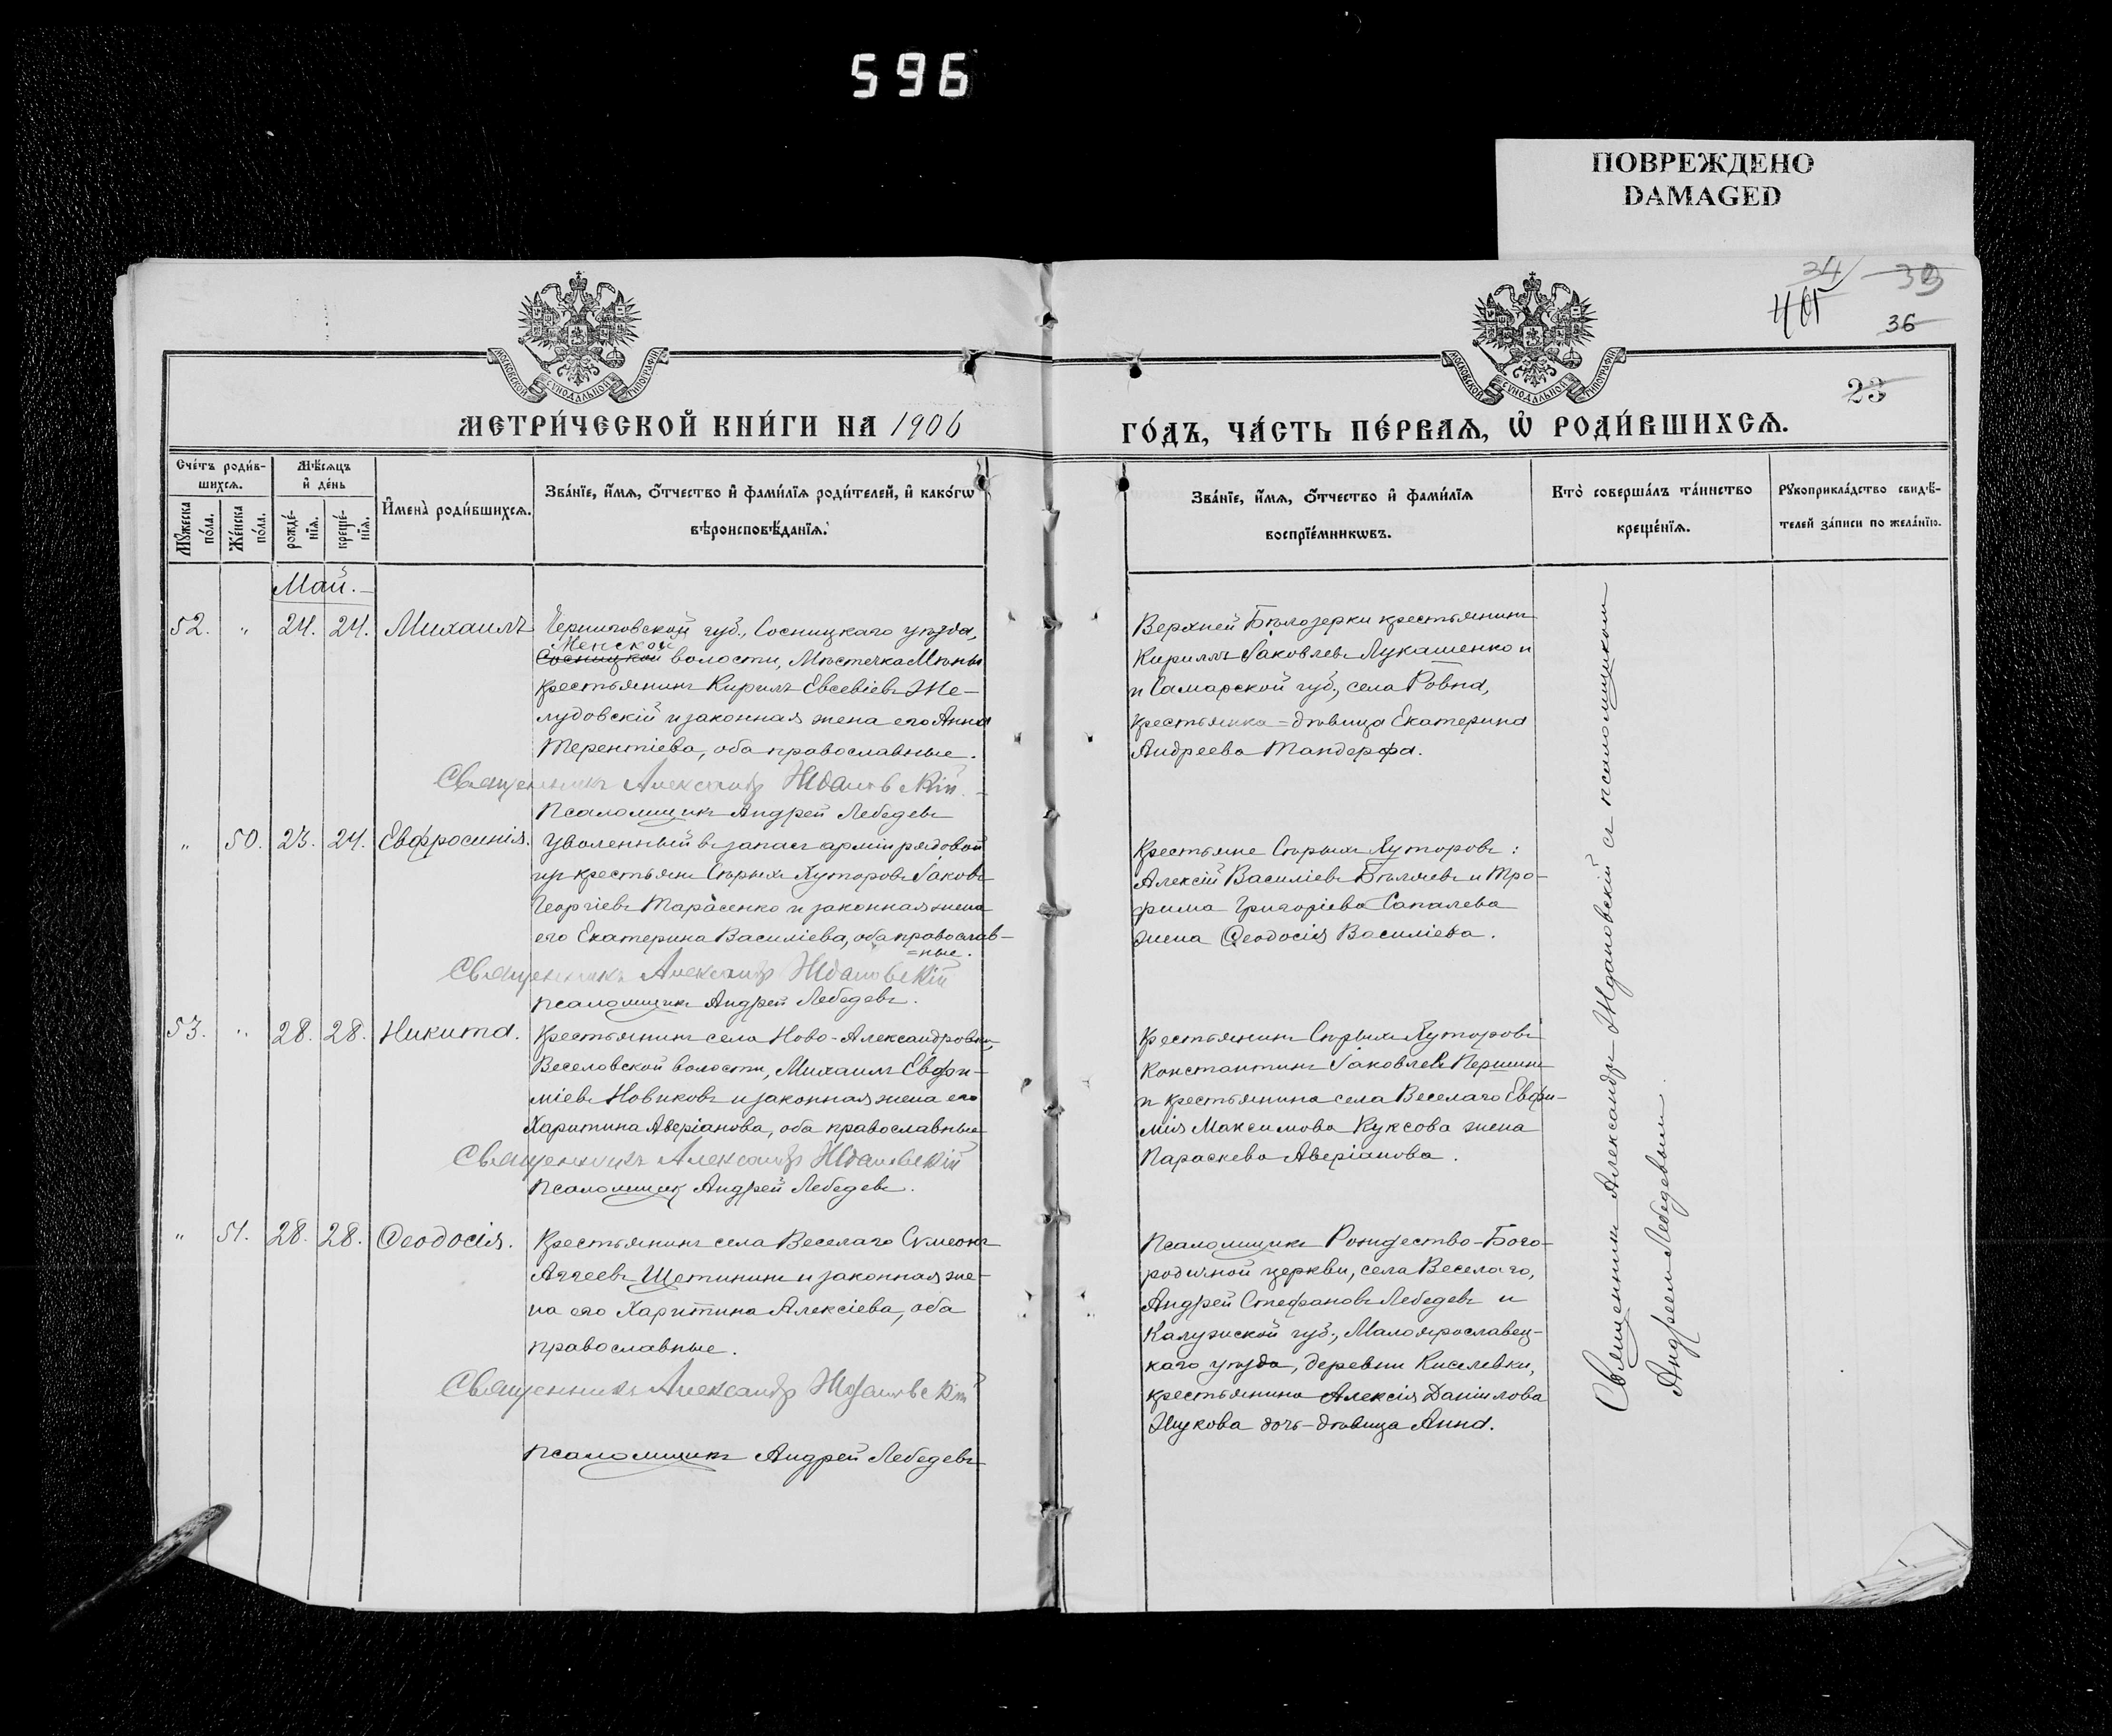 596
ПОВРЕЖДЕНО
DAMAGED
34 39
36
23
МОСКОВСКОЙ СѴНОДАЛЬНОЙ ТИПОГРАФІИ
МОСКОВСКОЙ СѴНОДАЛЬНОЙ ТИПОГРАФІИ
МЕТРИ́ЧЕСКОЙ КНИ́ГИ НА 1906
ГО́ДЪ, ЧА́СТЬ ПЕ́РВАѦ, Ѡ҆ РОДИ́ВШИХСѦ.
Сче́тъ роди́в-
шихсѧ.
Мꙋ́жеска по́ла.
Же́нска по́ла.
Мѣ́сѧцъ
и҆ де́нь
рожде́-
нїѧ.
креще́-
нїѧ.
И҆мена̀ роди́вшихсѧ.
Зва́нїе, и҆́мѧ, ѻ҆́тчество и҆ фами́лїѧ роди́телей, и҆ како́гѡ
вѣроисповѣ́данїѧ.
Зва́нїе, и҆́мѧ, ѻ҆́тчество и҆ фами́лїѧ
воспрїе́мникѡвъ.
Кто̀ соверша́лъ та́инство
креще́нїѧ.
Рꙋкоприкла́дство свидѣ́-
телей за́писи по жела́нїю.
Май.
52. " 24. 24. Михаилъ
Черниговской губ., Сосницкаго уѣзда,
Менской
Сосницкой волости, Мѣстечка Мѣны
крестьянинъ Кирилъ Евсевіевъ Же-
лудовскій и законная жена его Анна
Терентіева, оба православные.
Священникъ Александр Ждановскій
Псаломщикъ Андрей Лебедевъ
Верхней Бѣлозерки крестьянинъ
Кириллъ Іаковлевъ Лукашенко и
и Самарской губ., села Ровна,
крестьянка-дѣвица Екатерина
Андреева Тандерфа.
" 50. 23. 24. Евфросинія.
Уволенный въ запасъ арміи рядовой
изъ крестьянъ Сѣрыхъ Хуторовъ Іаковъ
Георгіевъ Тарасенко и законная жена
его Екатерина Василіева, оба православ-
=ные.
Священникъ Александр Ждановскій
псаломщикъ Андрей Лебедевъ.
Крестьяне Сѣрыхъ Хуторовъ:
Алексій Василіевъ Бѣляевъ и Тро-
фима Григоріева Сапалева
жена Ѳеодосія Василіева.
53. " 28. 28. Никита.
Крестьянинъ села Ново-Александровки,
Веселовской волости, Михаилъ Евфи-
міевъ Новиковъ и законная жена его
Харитина Аверіанова, оба православные
Священникъ Александр Ждановскій
псаломщик Андрей Лебедевъ.
Крестьянинъ Сѣрыхъ Хуторовъ
Константинъ Іаковлевъ Першинъ
и крестьянина села Веселаго Евфи-
мія Максимова Куксова жена
Параскева Аверіанова.
" 51. 28. 28. Ѳеодосія.
Крестьянинъ села Веселаго Сѵмеонъ
Аггеевъ Щетининъ и законная же-
на его Харитина Алексіева, оба
православные.
Священникъ Александр Ждановскій
псаломщикъ Андрей Лебедевъ
Псаломщикъ Рождество-Бого-
родичной церкви, села Веселаго,
Андрей Стефановъ Лебедевъ и
Калужской губ., Малоярославец-
каго уѣзда, деревни Киселевки,
крестьянина Алексія Даніилова
Жукова дочь-дѣвица Анна.
Священникъ Александръ Ждановскій съ псаломщикомъ
Андреемъ Лебедевымъ.